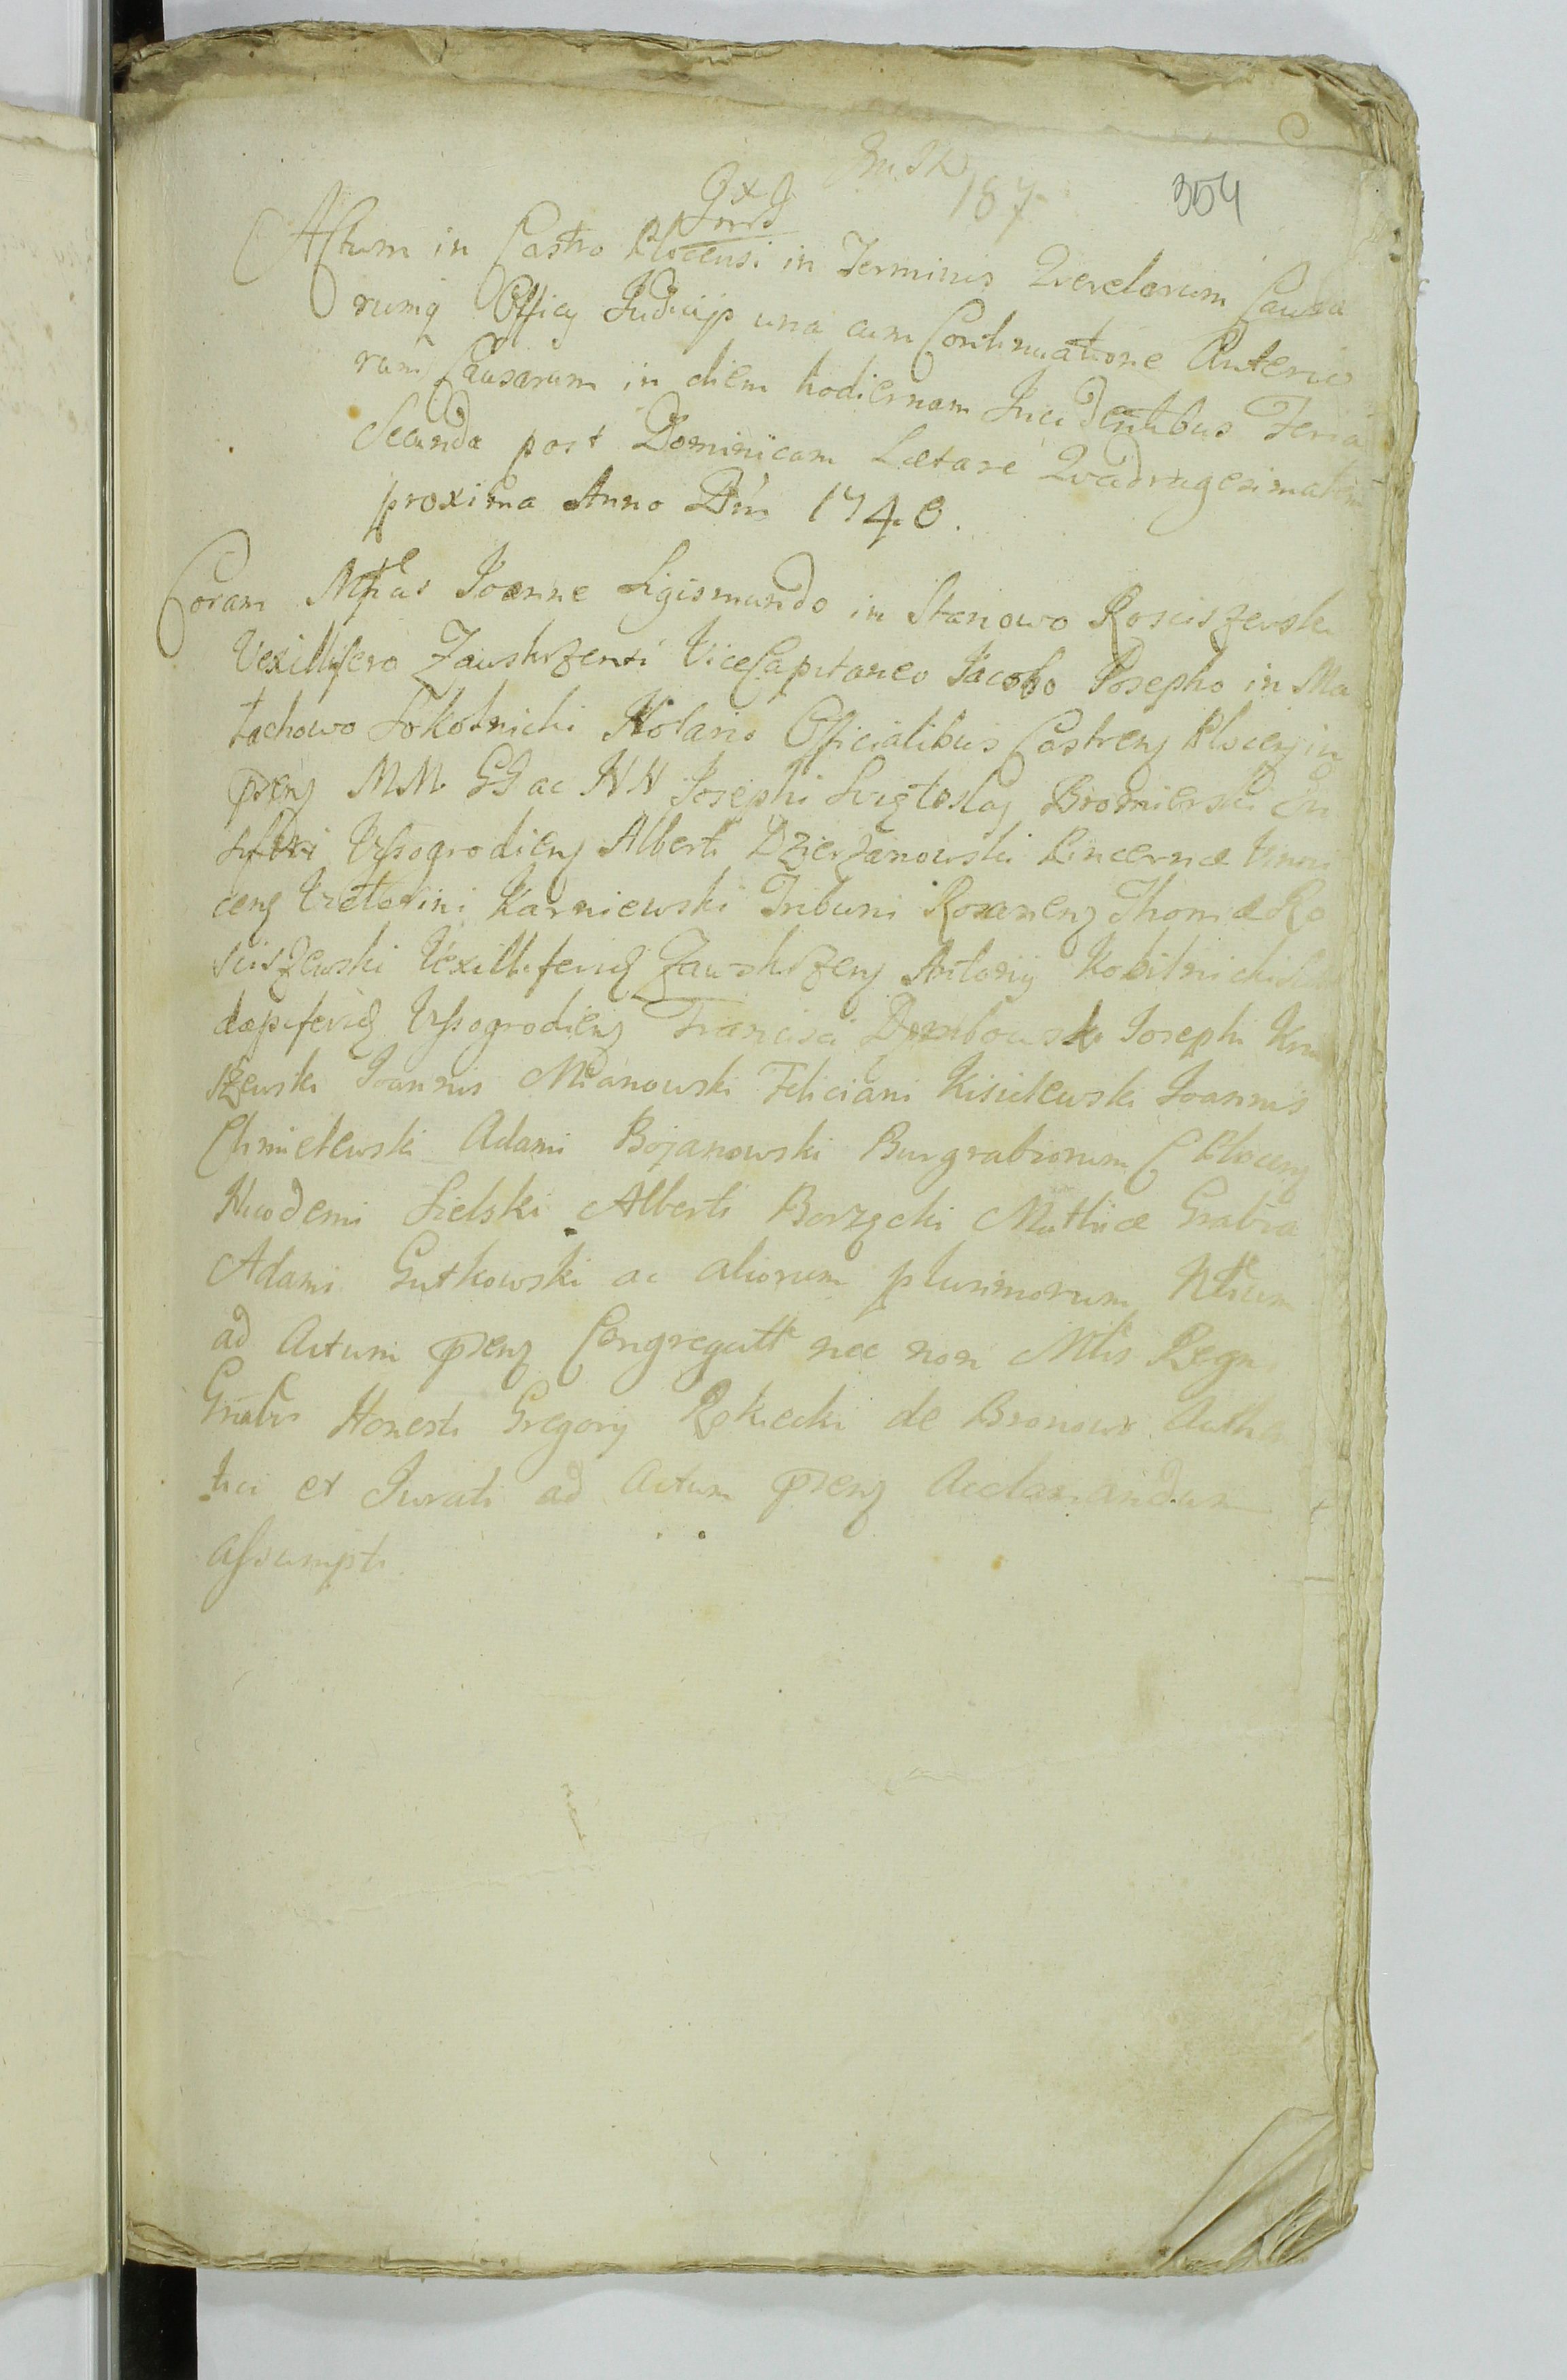 187 354
Actum in Castro Plocensi in Terminis Querelarum Causa
rumq Officy Judicijs una cum Continuatione Anterio
rum Causarum in diem hodiernam Incidentibus Feria
Secunda post Dominicam Lætare Quadragesimalem
proxima Anno Dni 1740.
Coram Mfcis Joanne Sigismundo in Stanowo Rosciszewski
Vexillifero Zawskrzensi ViceCapitaneo Jacobo Josepho in Ma
łachowo Sokolnicki Notario Officialibus Castrenz Plocenz in
prænz MM GG ac NN Josephi Swiętoslaj Bromierski
Wyssogrodienz Alberti Dzierzanowski Pincernæ Winni
cenz Victorini Karniewski Tribuni Rozanenz Thomæ Ro
sciszewski Vexilliferidæ Zawskrzenz Antonij Kobilnicki
dapiferidæ Wyssogrodienz Francisci Dembowski Josephi
szewski Joannis Mdanowski Feliciani Kisielewski Joannis
Chmielewski Adami Bojanowski Burgrabiorum C Plocenz
Nicodemi Sielski Alberti Borzęcki Mathiæ Grabia
Adami Gutkowski ac aliorum plurimorum Nblium
ad Actum prænz Congregatt nec non Mtlis Regn
Gnalis Honesti Gregorij Rokicki de Bronowo Authen
tici et Jurati ad Actum prænz Acclamandum
assumpti.